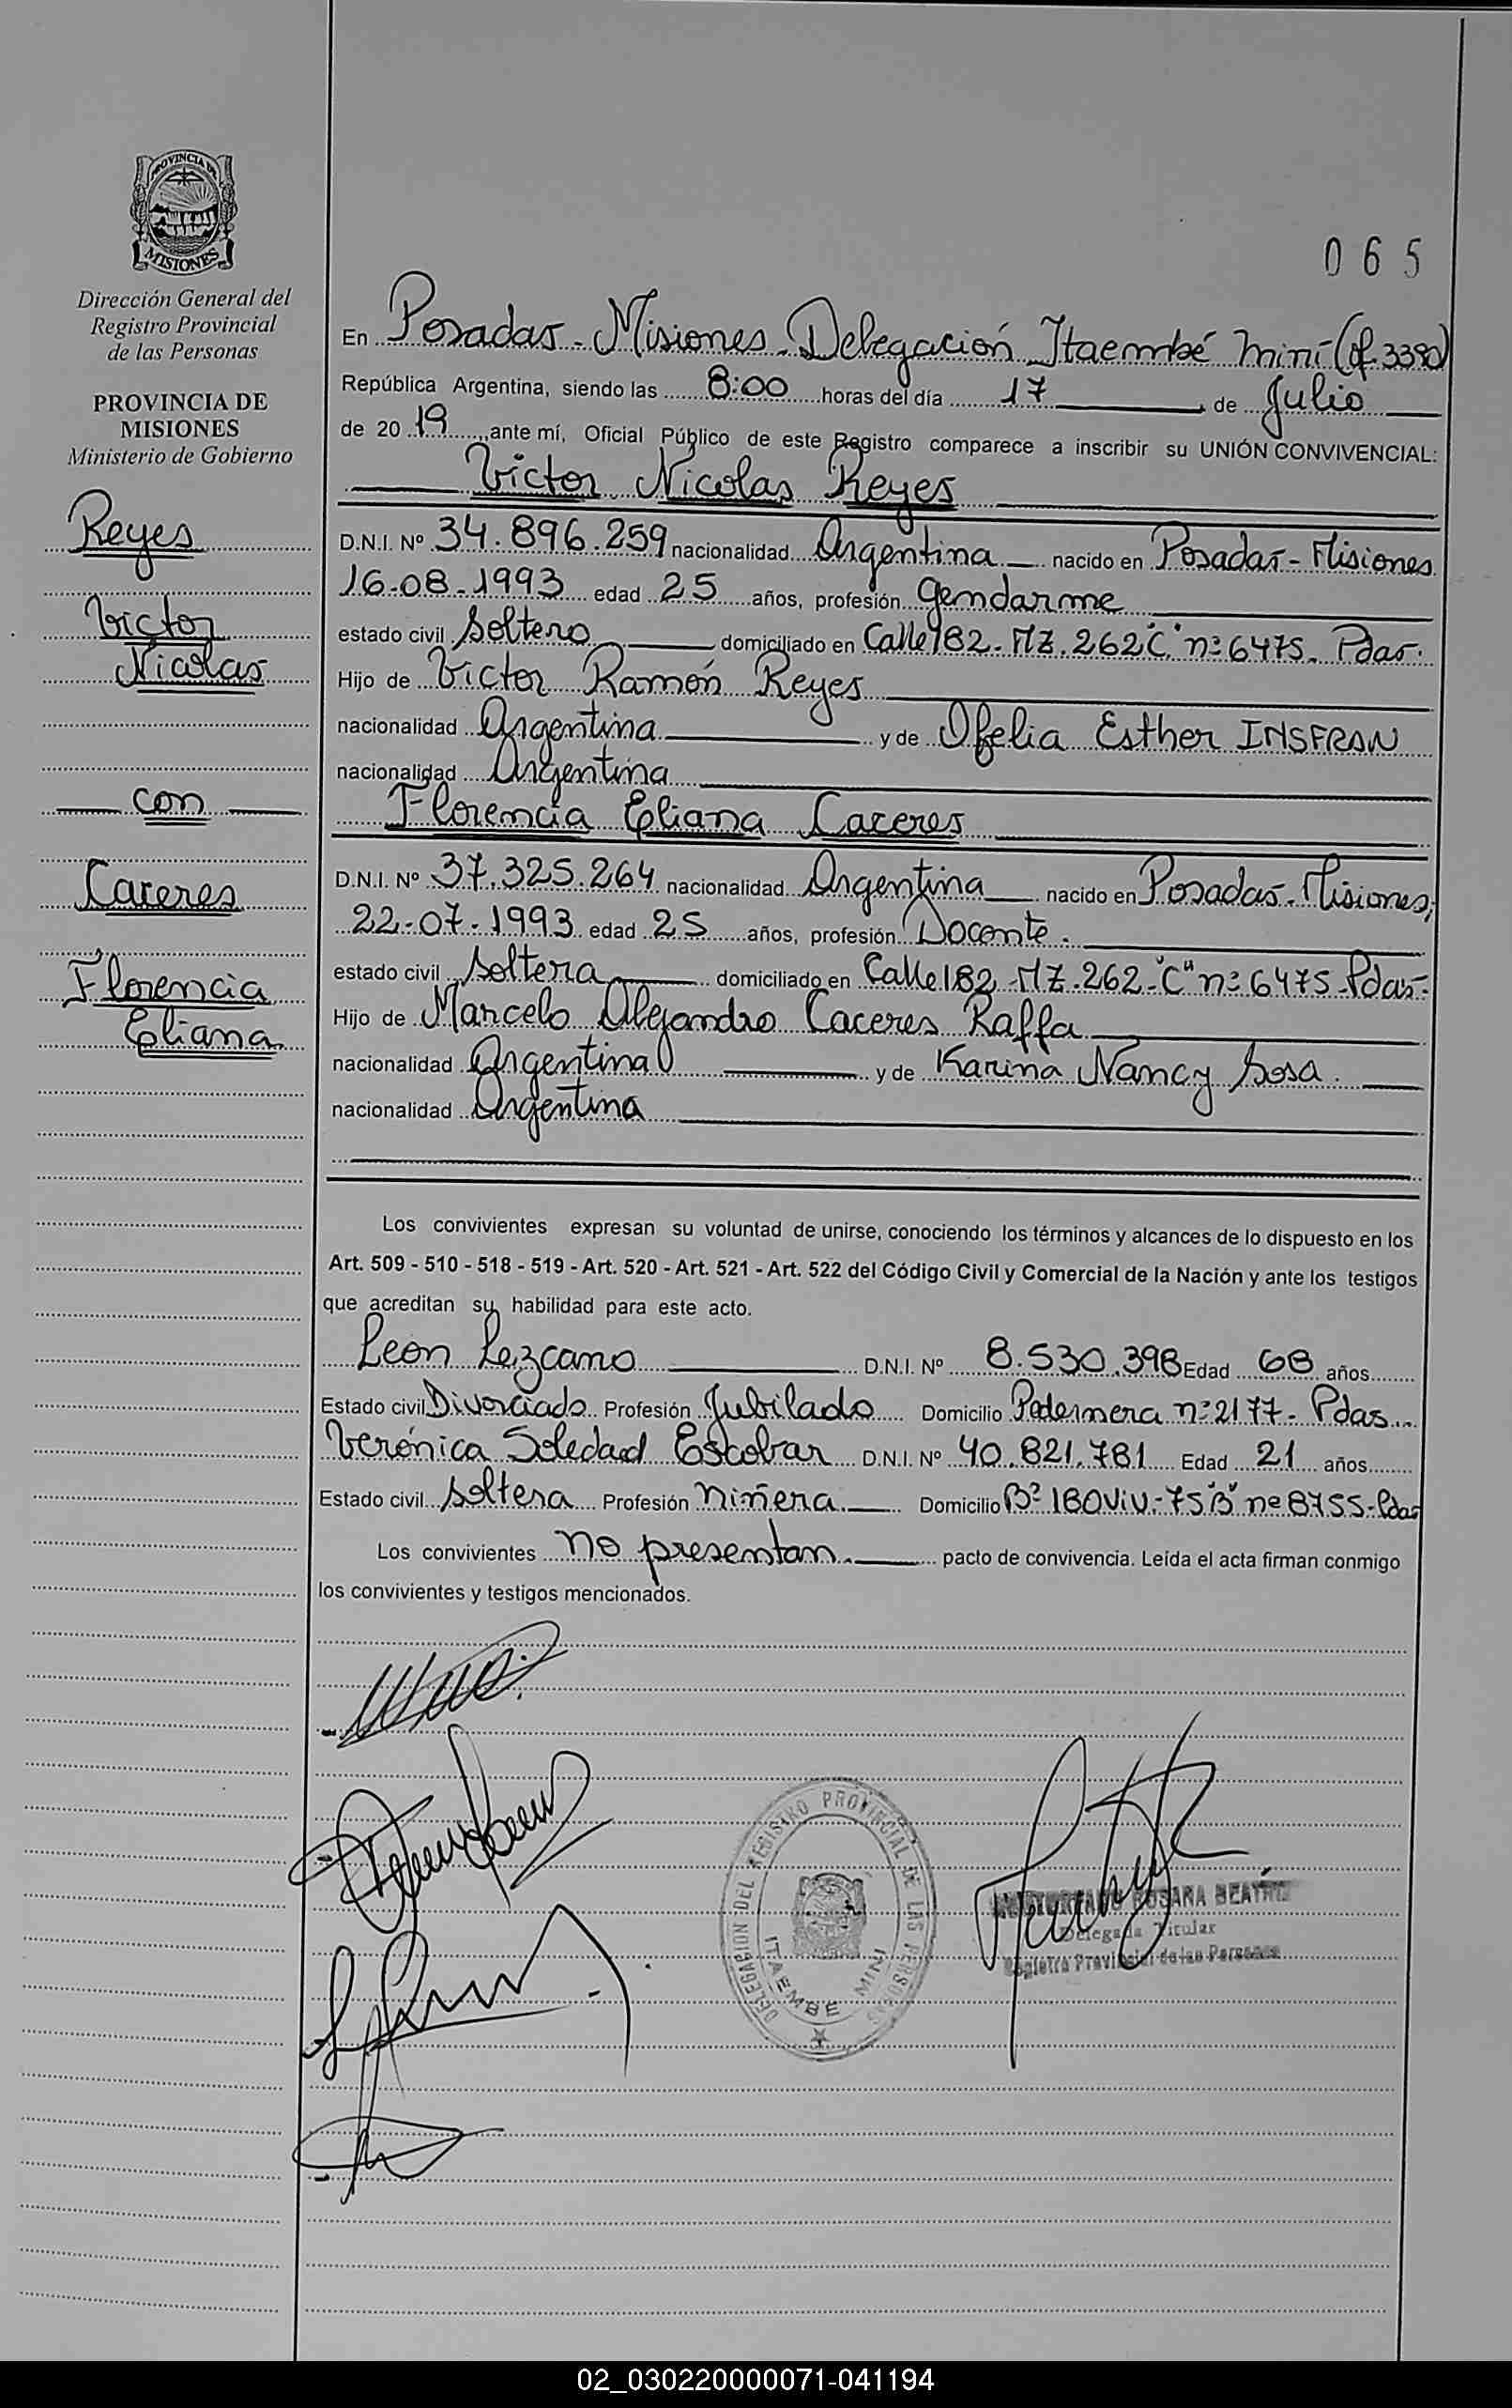 PROVINCIA DE
MISIONES
Dirección General del
Registro Provincial
de las Personas
PROVINCIA DE
MISIONES
Ministerio de Gobierno
Reyes
Victor
Nicolas
con
Caceres
Florencia
Eliana
065
En Posadas - Misiones - Delegación Itaembé Miní (of. 3380)
República Argentina, siendo las 8:00 horas del día 17 de Julio
de 2019, ante mí, Oficial Público de este Registro comparece a inscribir su UNIÓN CONVIVENCIAL:
Victor Nicolas Reyes
D.N.I. Nº 34.896.259 nacionalidad Argentina nacido en Posadas - Misiones
16-08-1993 edad 25 años, profesión Gendarme
estado civil Soltero domiciliado en Calle 182 - MZ. 262 "C" nº 6475 - Pdas.
Hijo de Victor Ramón Reyes
nacionalidad Argentina y de Ofelia Esther INSFRAN
nacionalidad Argentina
Florencia Eliana Caceres
D.N.I. Nº 37.325.264 nacionalidad Argentina nacido en Posadas - Misiones,
22-07-1993 edad 25 años, profesión Docente.
estado civil Soltera domiciliado en Calle 182 - MZ. 262 - "C" nº 6475 - Pdas -
Hijo de Marcelo Alejandro Caceres Raffa
nacionalidad Argentina y de Karina Nancy Sosa.
nacionalidad Argentina
Los convivientes expresan su voluntad de unirse, conociendo los términos y alcances de lo dispuesto en los
Art. 509 - 510 - 518 - 519 - Art. 520 - Art. 521 - Art. 522 del Código Civil y Comercial de la Nación y ante los testigos
que acreditan su habilidad para este acto.
Leon Lezcano D.N.I. Nº 8.530.398 Edad 68 años
Estado civil Divorciado Profesión Jubilado Domicilio Pedernera nº 2177 - Pdas
Verónica Soledad Escobar D.N.I. Nº 40.821.781 Edad 21 años
Estado civil Soltera Profesión niñera. Domicilio Bº 180 Viv. - 75 "B" nº 8755 - Pdas
Los convivientes no presentan. pacto de convivencia. Leída el acta firman conmigo
los convivientes y testigos mencionados.
DELEGACION DEL REGISTRO PROVINCIAL DE LAS PERSONAS
ITAEMBE MINI
ROSANA BEATRIZ
Delegada Titular
Registro Provincial de las Personas
02_030220000071-041194